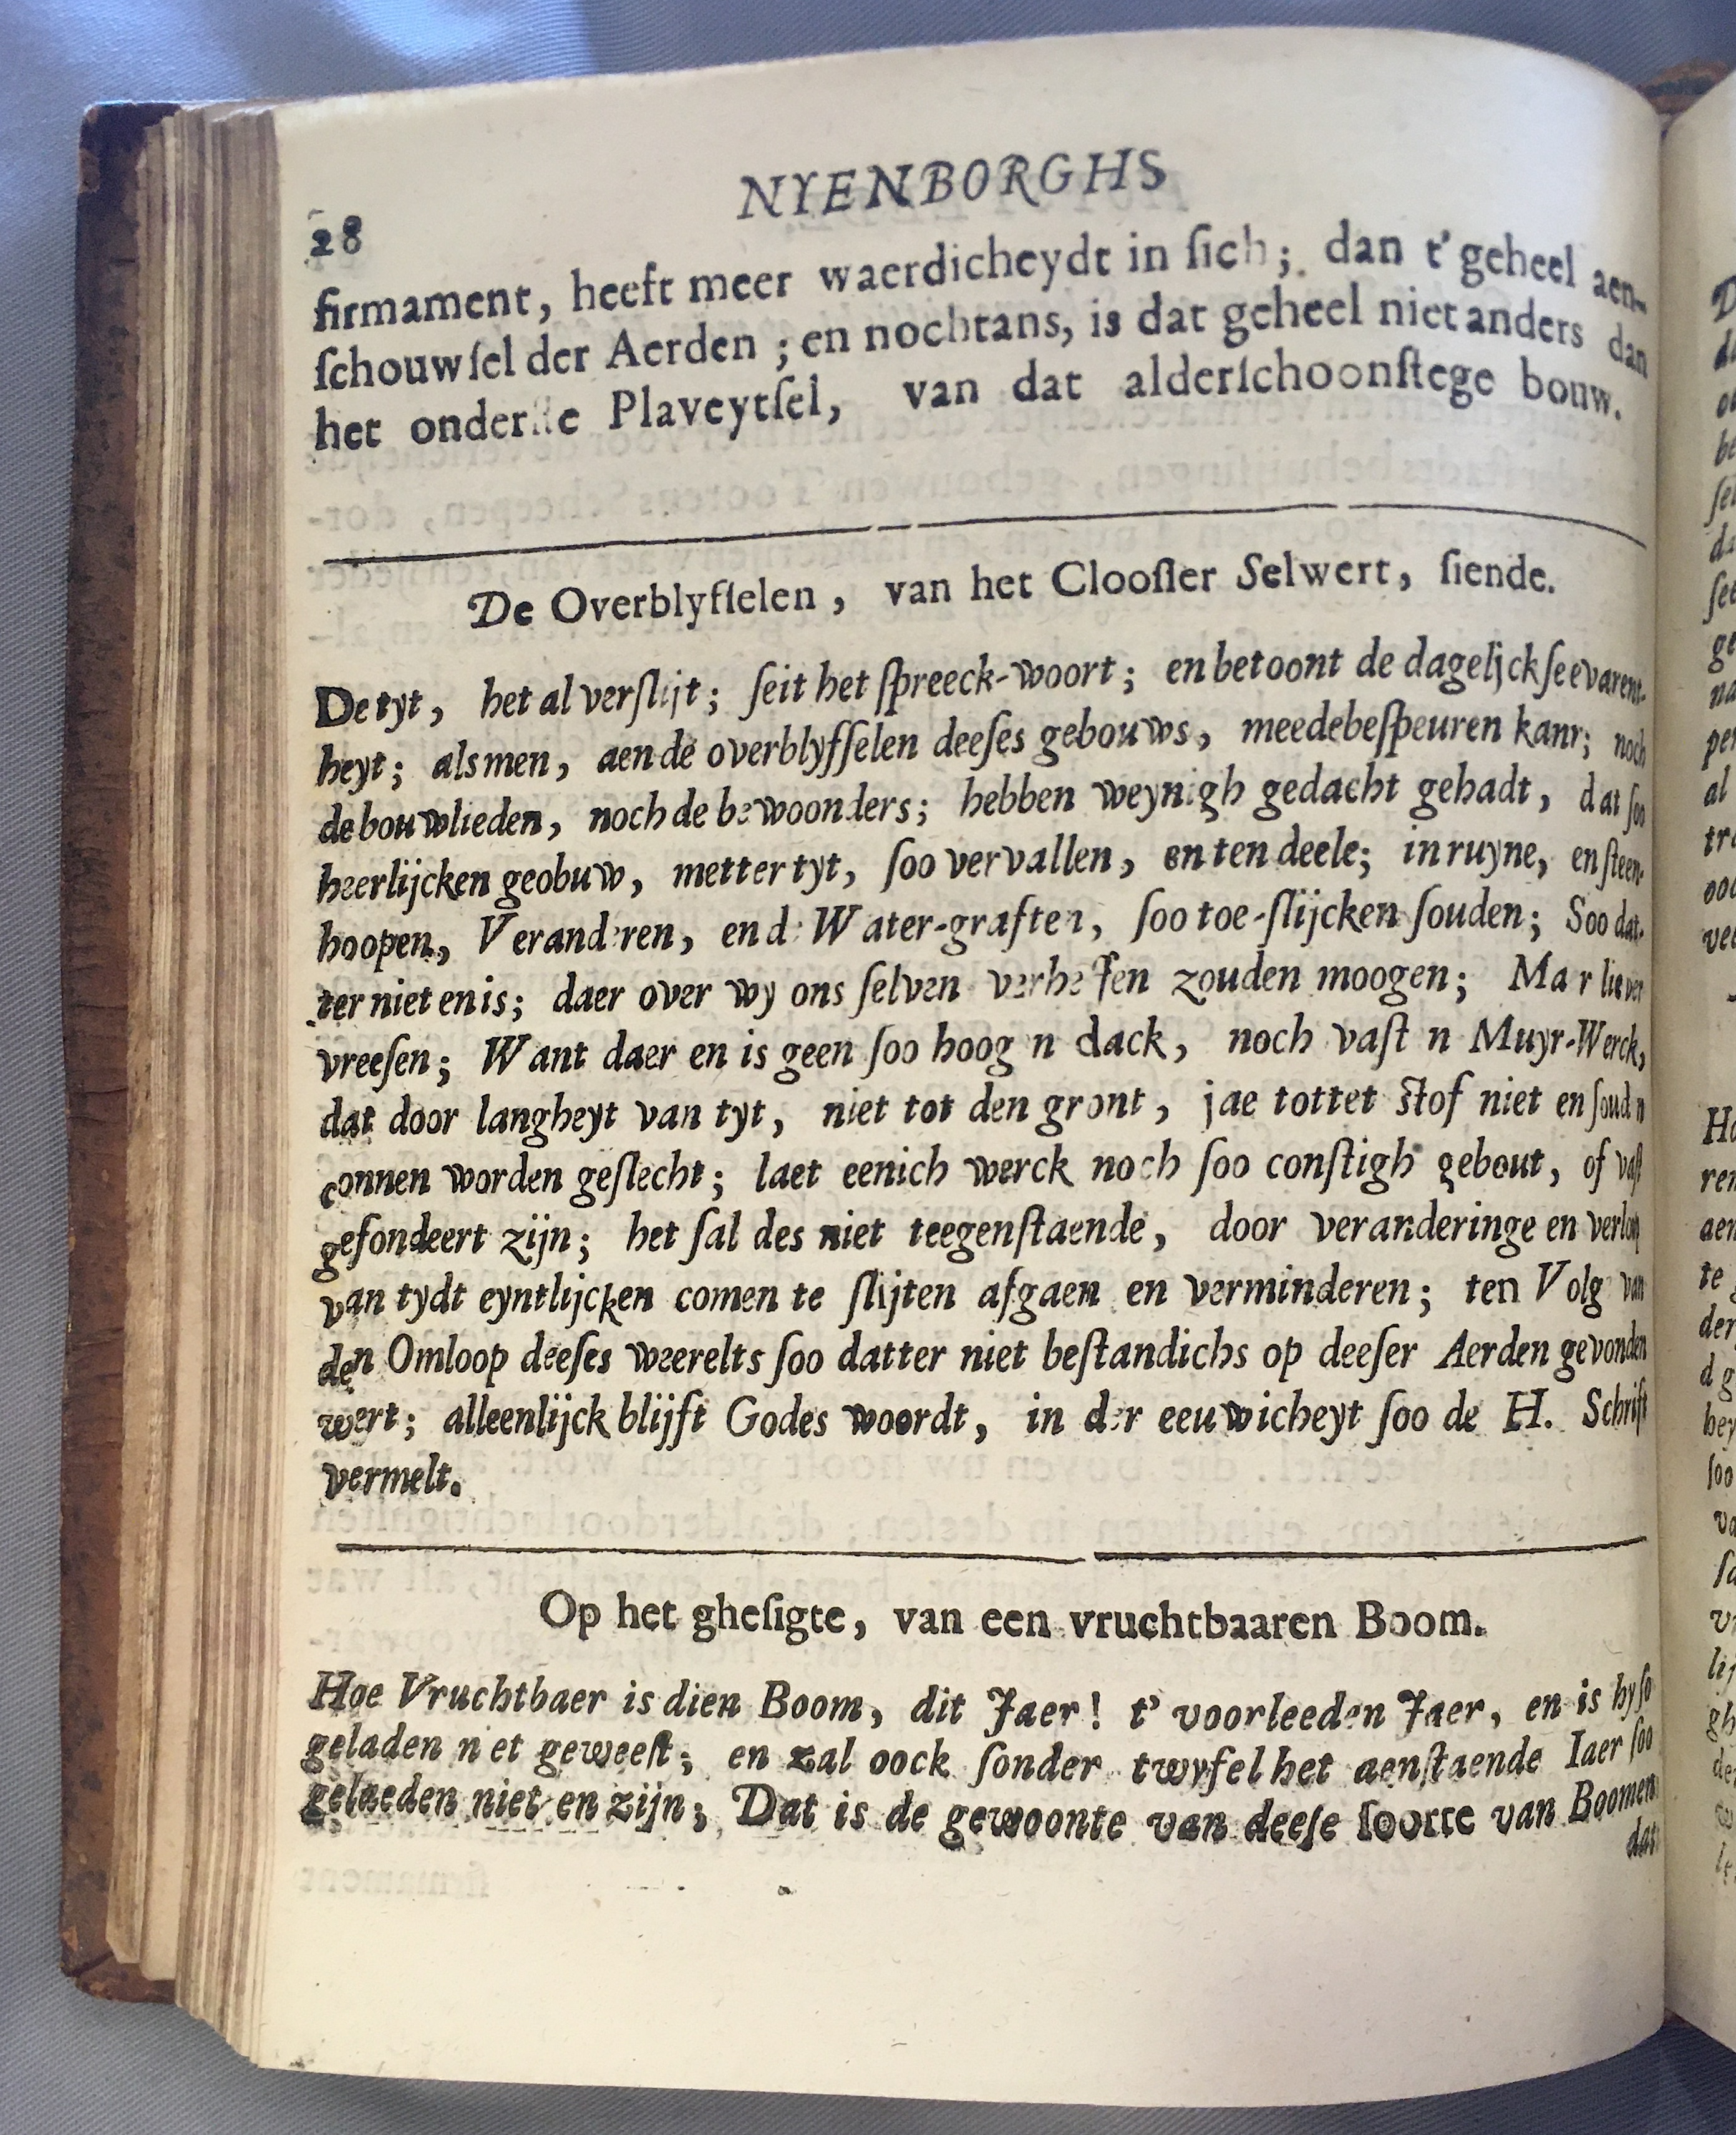 NYENBORGHS
28
firmament, heeft meer waerdicheydt in ſich; dan t' geheel aen-
ſchouwſel der Aerden; en nochtans, is dat geheel niet anders dan
het onderſte Plaveytſel, van dat alderſchoonſtege bouw.
De Overblyfſelen, van het Clooſter Selwert, ſiende.
De tyt, het al verſlijt; ſeit het ſpreeck-woort; en betoont de dagelijckſe evarent-
heyt; alsmen, aen de overblyfſelen deeſes gebouws, meede beſpeuren kanr; noch
de bouwlieden, noch de bewoonders; hebben weynigh gedacht gehadt, dat ſoo
heerlijcken geobuw, metter tyt, ſoo vervallen, en ten deele; in ruyne, en ſteen-
hoopen, Veranderen, en de Water-graften, ſoo toe-ſlijcken ſouden; Soo dat-
ter niet en is; daer over wy ons ſelven verheffen zouden moogen; Ma r liever
vreeſen; Want daer en is geen ſoo hoog n dack, noch vaſt n Muyr-Werck,
dat door langheyt van tyt, niet tot den gront, jae tottet ſtof niet en ſoud n
connen worden geſlecht; laet eenich werck noch ſoo conſtigh gebout, of vaſt
gefondeert zijn; het ſal des niet teegenſtaende, door veranderinge en verloop
van tydt eyntlijcken comen te ſlijten afgaen en verminderen; ten Volg van
den Omloop deeſes weerelts ſoo datter niet beſtandichs op deeſer Aerden gevonden
wert; alleenlijck blijft Godes woordt, in der eeuwicheyt ſoo de H. Schrift
vermelt.
Op het gheſigte, van een vruchtbaaren Boom.
Hoe Vruchtbaer is dien Boom, dit Jaer! t' voorleeden Jaer, en is hy ſo
geladen n et geweeſt; en zal oock ſonder twyfel het aenſtaende Iaer ſoo
gelaeden niet en zijn; Dat is de gewoonte van deeſe ſoorte van Boomen
dat